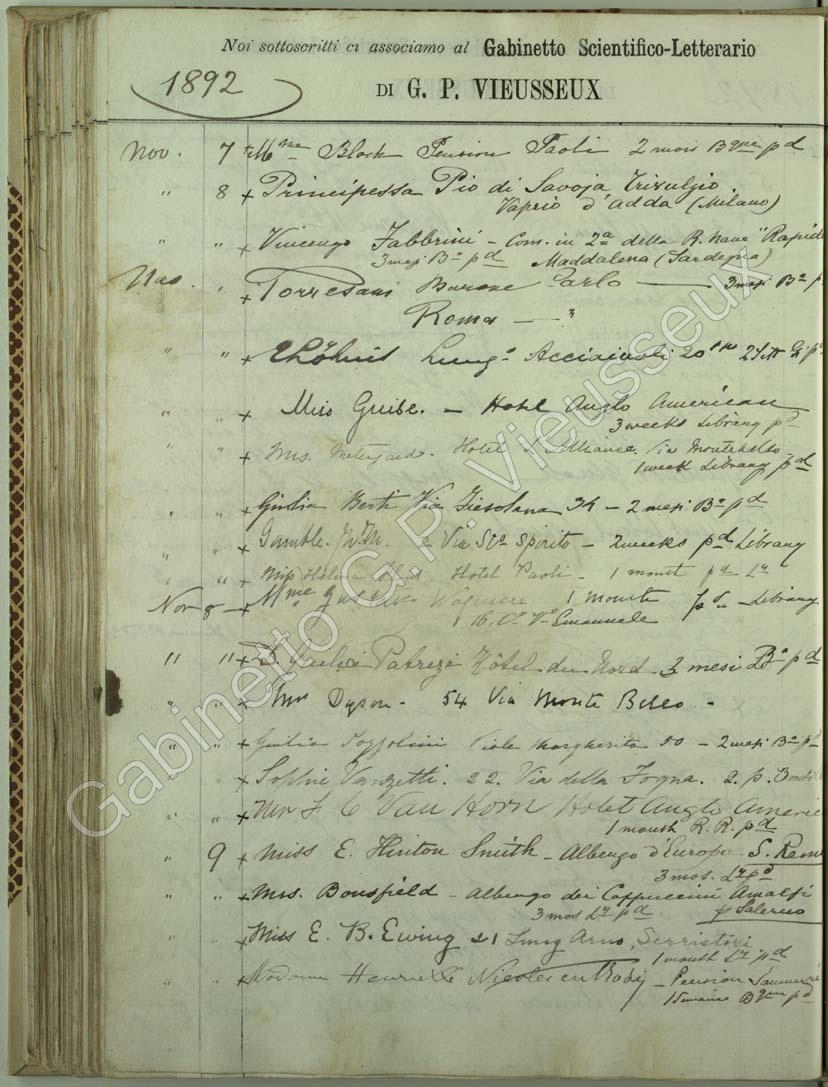 Noi sottoscritti ci associamo al Gabinetto Scientifico-Letterario
1892
DI G. P. VIEUSSEUX
Nov. 7 + Mme Block Pension Paoli 2 mois Bque pd
" 8 + Principessa Pio di Savoja Trivulzio.
Vaprio d'Adda (Milano)
" " + Vincenzo Fabbrini - Com. in 2a della R. Nave "Rapido
3 mesi Ba pd Maddalena (Sardegna)
" + Torresani Barone Carlo — 3 mesi Ba p
Roma —
" " + Lungo Acciaiuoli 20
" " + Miss - Hotel Anglo American
3 weeks Library pd
" " + Mrs. Hotel d'Alliance. Via Montebello -
1 week Library pd
" " + Giulia Berti Via Fiesolana 34 - 2 mesi Ba pd
" " + Gamble. Wm. 2 Via Sto Spirito - 2 weeks pd Library
" " + Miss Helena Hotel Paoli - 1 month pd Ly
Nov 8 - Mme 1 month pd - Library
16, Co Vo Emanuele
" " + Patrizi Hôtel du Nord 3 mesi Ba pd
" " + Mrs Dyson - 54 Via Monte Bello -
" " + Giulia Pozzolini Viale Margherita 50 - 2 mesi Ba pd
" " + Sophie Vanzetti. 22. Via della Fogna. 2. p. 3 mesi
" " + Mr F C Van Horn Hotel Anglo Americ
1 month R. R. pd
" 9 + Miss E. Hinton Smith - Albergo d'Europa S. Remo
3 mos. Ly pd
" " + Mrs. Bousfield - Albergo dei Cappuccini Amalfi
3 mos Ly pd Salerno
" " + Miss E. B. Ewing 21 Lung Arno, Serristori
1 month Ly pd
" " + Madame Pension
1 Semaine Bque pd
Gabinetto G.P. Vieusseux